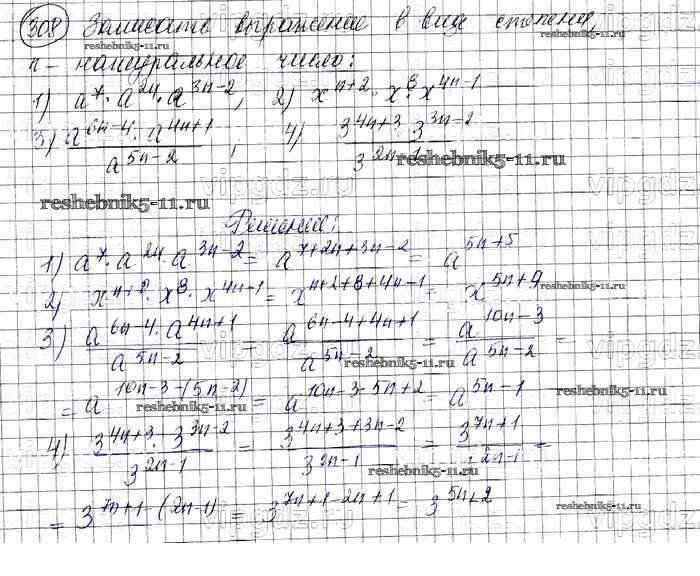 308 Записать выражение в виде степени,
reshebnik5-11.ru reshebnik5-11.ru
n - натуральное число:
1) a^7 · a^{2n} · a^{3n-2}, 2) x^{n+2} · x^8 · x^{4n-1}
3) \frac{a^{6n-4} · a^{4n+1}}{a^{5n-2}}, 4) \frac{3^{4n+3} · 3^{3n-2}}{3^{2n-1}}
reshebnik5-11.ru
reshebnik5-11.ru
vipgdz.ru
Решение:
1) a^7 · a^{2n} · a^{3n-2} = a^{7+2n+3n-2} = a^{5n+5}
2) x^{n+2} · x^8 · x^{4n-1} = x^{n+2+8+4n-1} = x^{5n+9}
reshebnik5-11.ru
3) \frac{a^{6n-4} · a^{4n+1}}{a^{5n-2}} = \frac{a^{6n-4+4n+1}}{a^{5n-2}} = \frac{a^{10n-3}}{a^{5n-2}} =
reshebnik5-11.ru
= a^{10n-3-(5n-2)} = a^{10n-3-5n+2} = a^{5n-1}
reshebnik5-11.ru reshebnik5-11.ru
4) \frac{3^{4n+3} · 3^{3n-2}}{3^{2n-1}} = \frac{3^{4n+3+3n-2}}{3^{2n-1}} = \frac{3^{7n+1}}{3^{2n-1}} =
reshebnik5-11.ru
= 3^{7n+1-(2n-1)} = 3^{7n+1-2n+1} = 3^{5n+2}
reshebnik5-11.ru